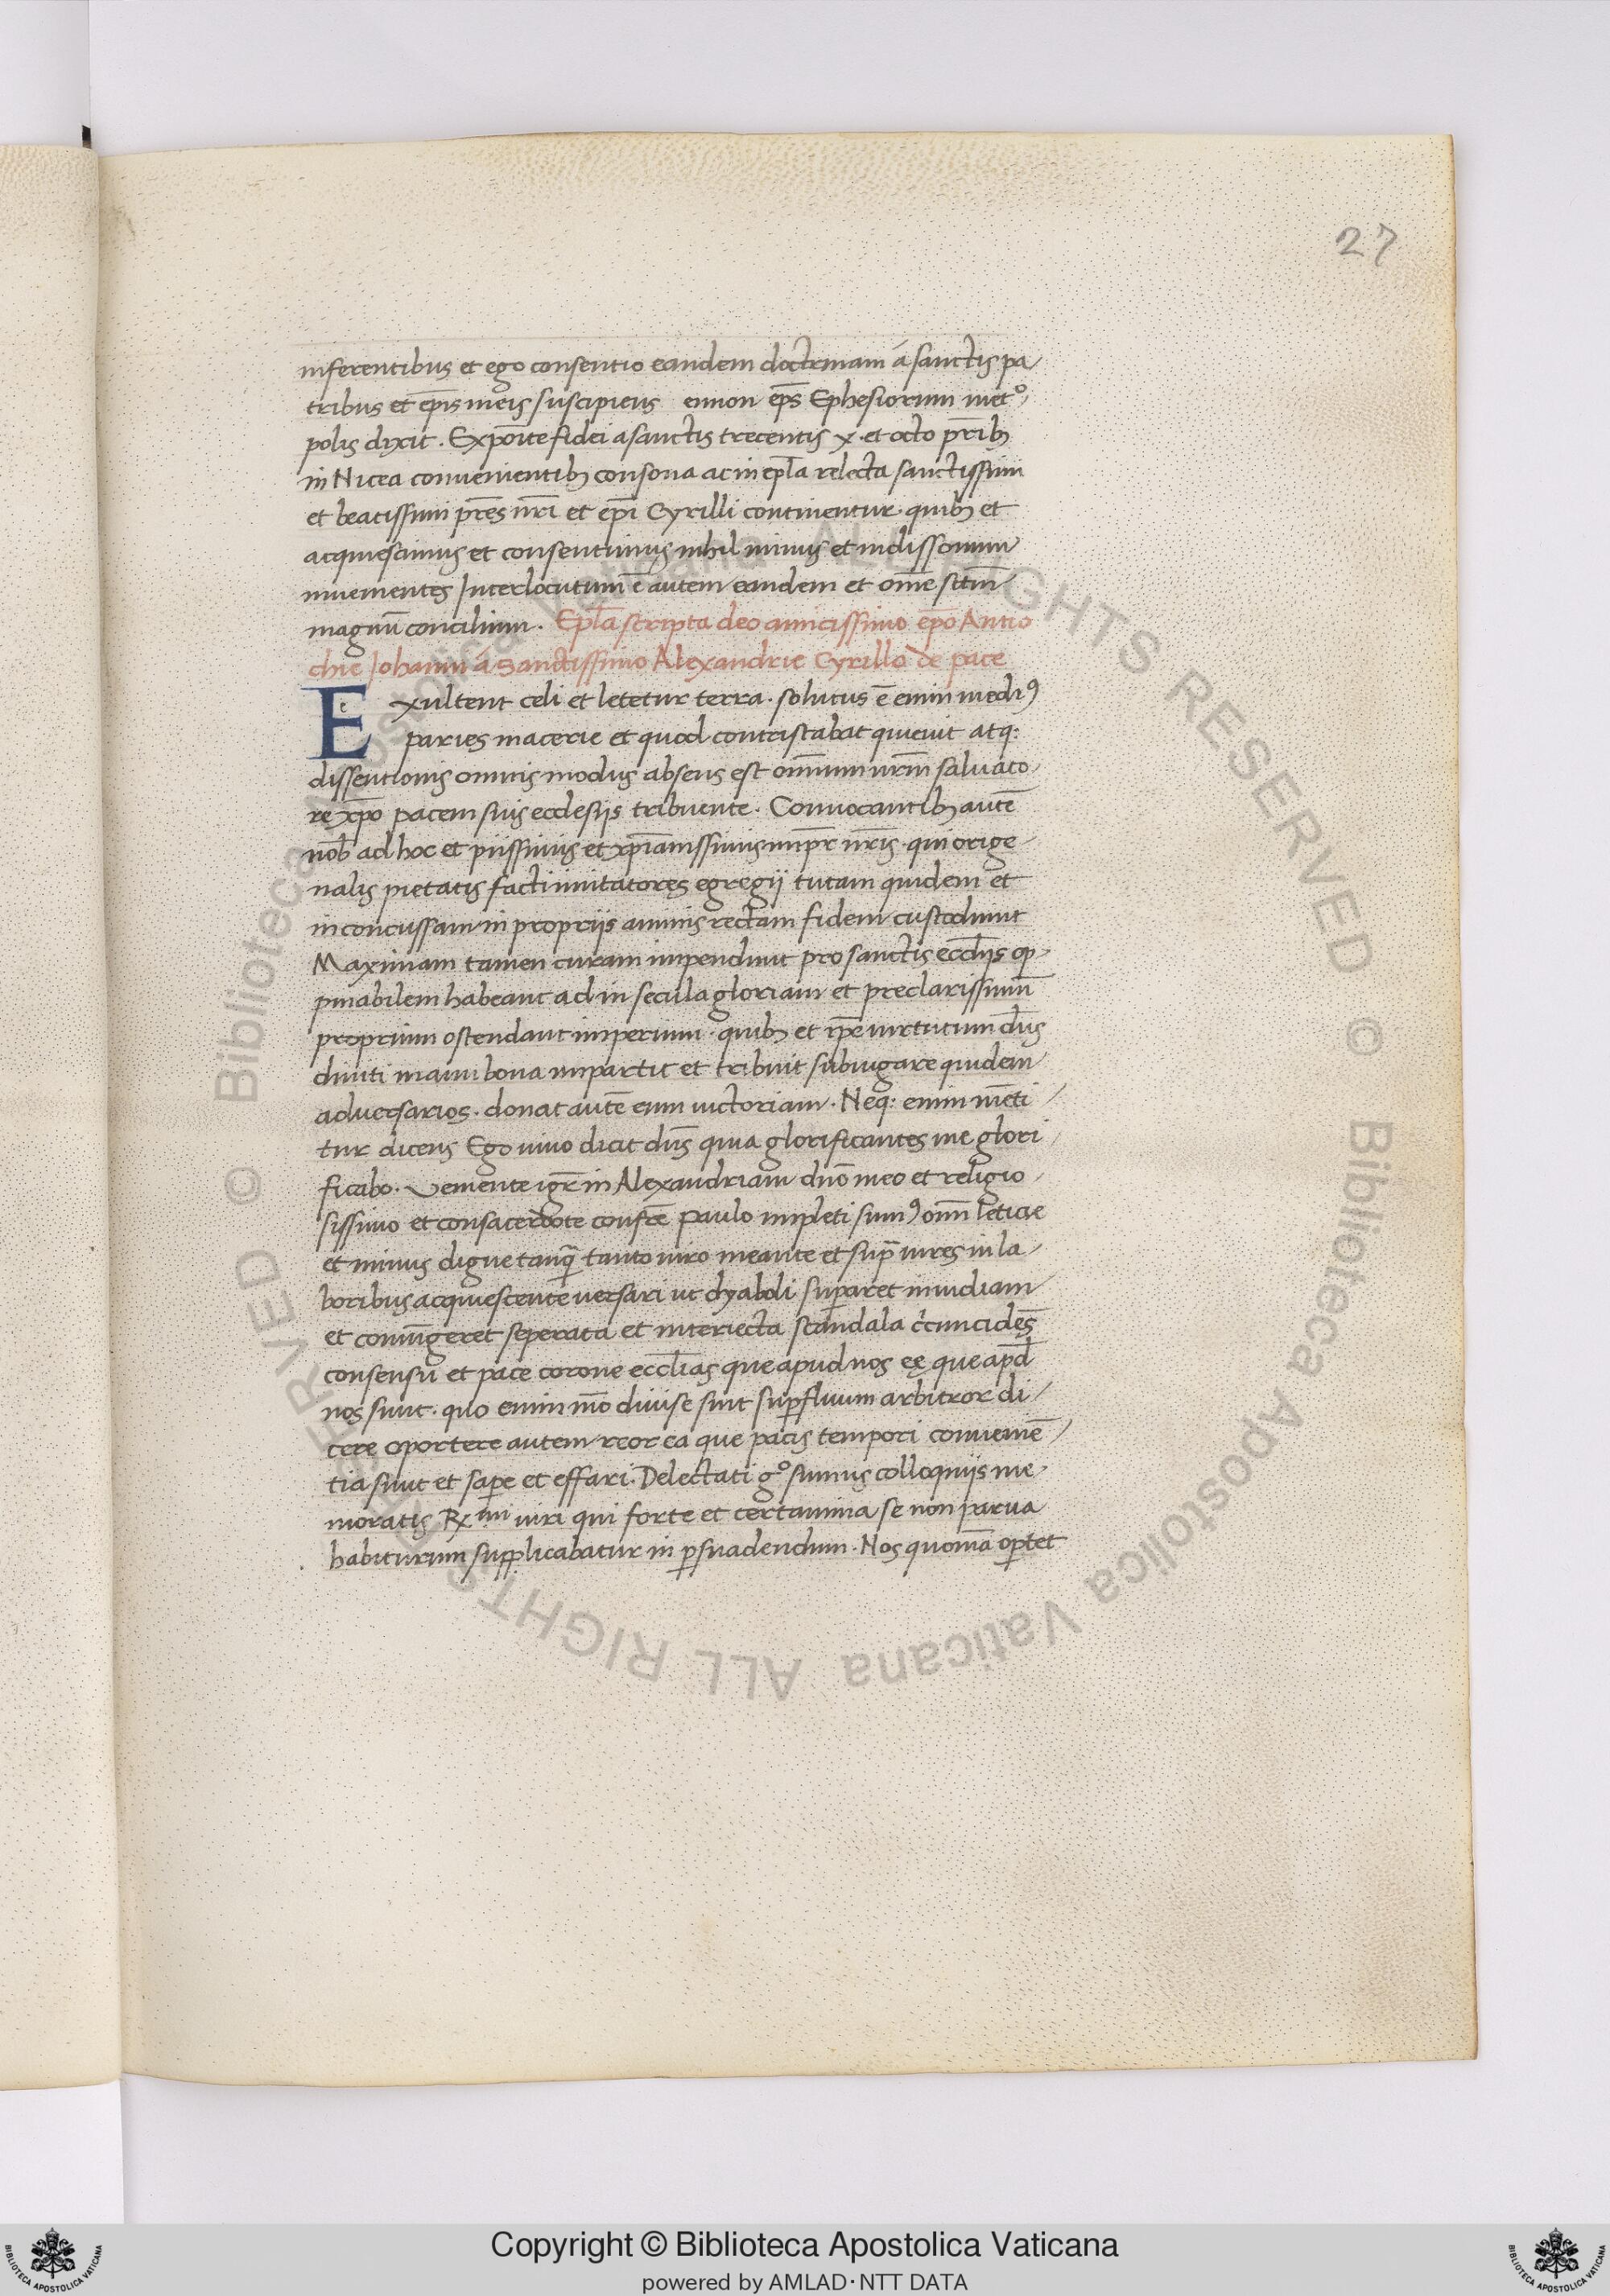 27
inferentibus et ego consentio eandem doctrinam á sanctis pa-
tribus et ep̄is meis suscipiens ennon ep̄s Ephesiorum metº,
polis dixit. Expōite fidei a sanctis trecentis x. et octo pr̄ib;
in Nicea convenientib; consona ac in epl̄a relecta sanctissimi
et beatissimi pr̄es nr̄i et ep̄i Cyrilli continentur. quib; et
acquiescimus et consentimus nihil minus et indissonum
invenientes Interlocutum ē autem eandem et om̄e sctm̄
magnū concilium. Epl̄a scripta deo amicissimo ep̄o Antio
chie Johanni á Sanctissimo Alexandrie Cyrillo de pace
Exultent celi et letetur terra. solutus ē enim mediꝰ
paries macerie et quod contristabat quievit atq:
dissentionis omnis modus absens est om̄nium nr̄m salvato-
re xp̄o pacem suis ecclesijs tribuente. Convocantib; autē
nob̄ ad hoc et piissimis et xp̄ianissimis impr̄ nr̄is. qui orige-
nalis pietatis facti imitatores egregij tutam quidem et
inconcussam in proprijs animis rectam fidem custodiunt
Maximam tamen curam impendunt pro sanctis eccl̄ijs op-
pinabilem habeant ad in secula gloriam et preclarissimū
proprium ostendant imperium. quib; et ip̄e virtutum dn̄s
diviti manu bona impartit et tribuit subiugare quidem
adversarios. donat autē eum victoriam. Neq: enim mēti-
tur dicens Ego vivo dicit dn̄s quia glorificantes me glori-
ficabo. veniente igr̄ in Alexandriam dn̄o meo et religio-
sissimo et consacerdote confr̄e Paulo impleti sumꝰ om̄i leticie
et minus digne tanq̄ tanto viro meante et sup̄ vires in la-
boribus acquiescente versari ut dyaboli sup̱aret invidiam
et coniūgeret seperata et interiecta scandala ccuncidēs
consensu et pace corone eccl̄ias que apud nos eę que apd̄
nos sunt. quo enim mō divise sint sup̱fluum arbitror di-
cere oportere autem reor ea que pacis tempori convenīe-
tia sunt et sap̱e et effari. Delectati gº sumus colloquijs me-
moratis Rx̄mi viri qui forte et certamina se non parva
habiturum supplicabatur in p̱suadendum. Nos quoniā op̱tet
Copyright © Biblioteca Apostolica Vaticana
powered by AMLAD·NTT DATA
© Biblioteca Apostolica Vaticana ALL RIGHTS RESERVED © Biblioteca Apostolica Vaticana ALL RIGHTS RESERVED
BIBLIOTECA APOSTOLICA VATICANA
BIBLIOTECA APOSTOLICA VATICANA